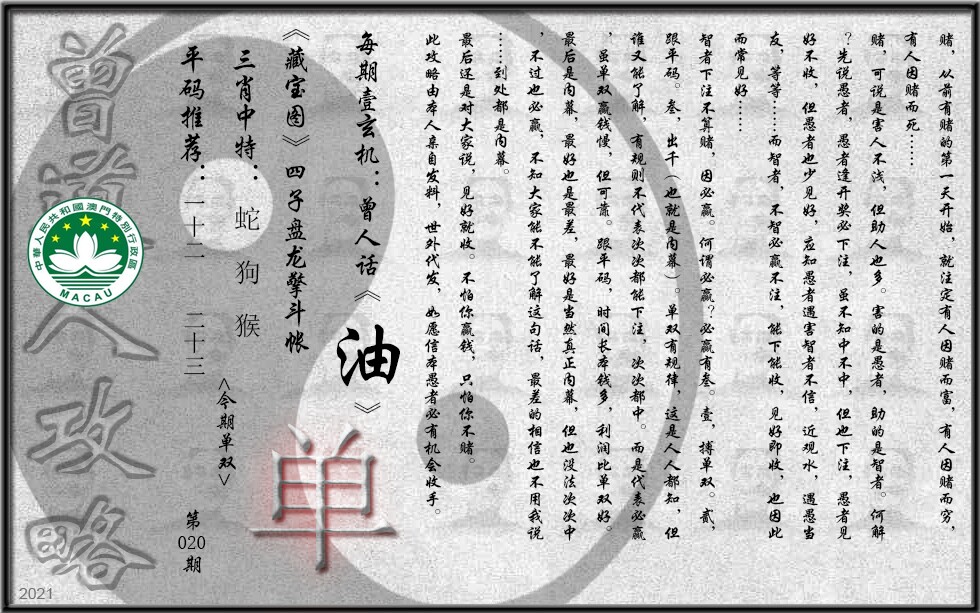 赌，从前有赌的第一天开始，就注定有人因赌而富，有人因赌而穷，
有人因赌而死……
赌，可说是害人不浅，但助人也多。害的是愚者，助的是智者。何解
？先说愚者，愚者逢开奖必下注，虽不知中不中，但也下注，愚者见
好不收，但愚者也少见好，应知愚者遇害智者不信，近观水，遇愚当
友，等等……而智者，不智必赢不注，能下能收，见好即收，也因此
而常见好……
智者下注不算赌，因必赢。何谓必赢？必赢有叁。壹，搏单双。贰，
跟平码。叁，出千（也就是内幕）。单双有规律，这是人人都知，但
谁又能了解，有规则不代表次次都能下注，次次都中。而是代表必赢
，虽单双赢钱慢，但可靠。跟平码，时间长本钱多，利润比单双好。
最后是内幕，最好也是最差，最好是当然真正内幕，但也没法次次中
，不过也必赢，不知大家能不能了解这句话，最差的相信也不用我说
……到处都是内幕。
最后还是对大家说，见好就收。不怕你赢钱，只怕你不赌。
此攻略由本人亲自发料，世外代发，如愿信本愚者必有机会收手。
每期壹玄机：曾人话《油》
《藏宝图》四子盘龙擎斗帐
三肖中特：蛇 狗 猴
<今期单双>
单
平码推荐：一十二 二十三
第
020
期
曾道人攻略
中華人民共和國澳門特別行政區
MACAU
2021